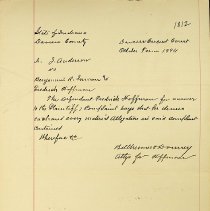 1812
State of Indiana
Daviess County
Daviess Circuit Court
October Term 1894
A. J. Anderson
vs
Benjamin R. Farrow Et
Fredrick Hoffman
The Defendent Fredrick Hoffman for answer
to the Plaintiffs Complaint says that he denies
each and every material allegation in said complaint
contained
Wherefore &c
Attys for Hoffman